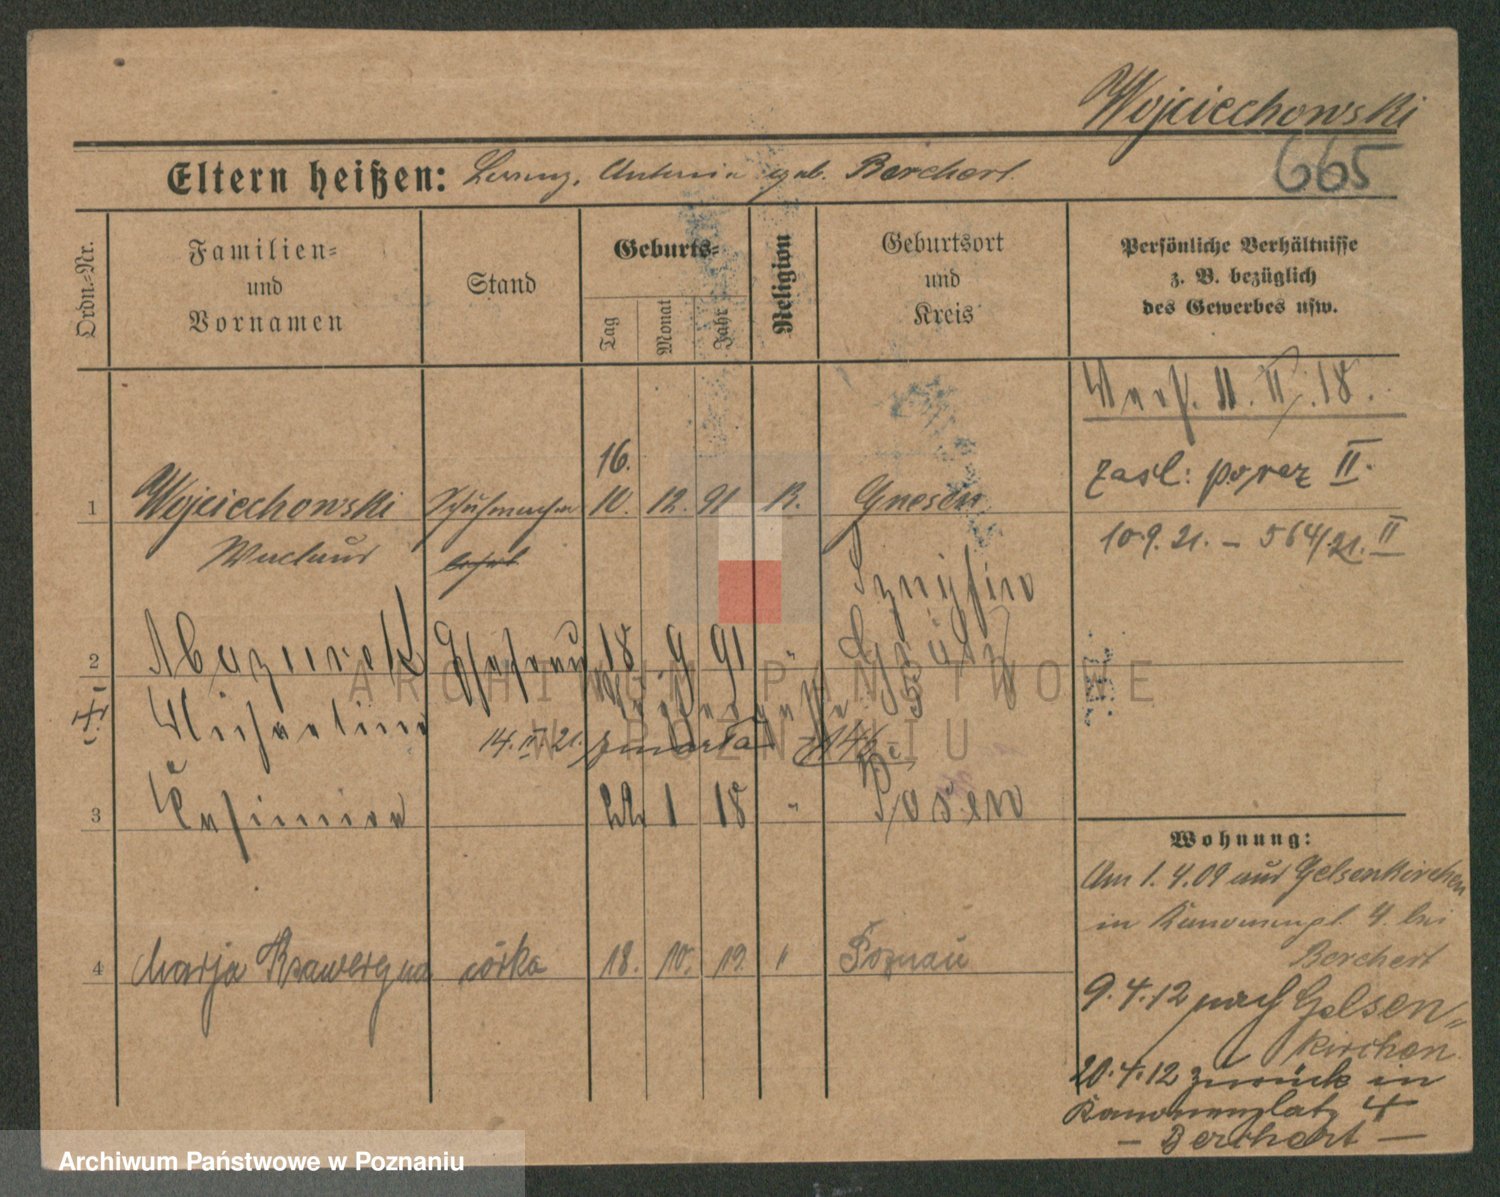 Wojciechowski
665
Eltern heißen: Lorenz, Antonia geb. Berchert
Ordn.-Nr.
Familien-
und
Vornamen
Stand
Geburts-
Tag
Monat
Jahr
Religion
Geburtsort
und
Kreis
Persönliche Verhältnisse
z. B. bezüglich
des Gewerbes usw.
II. 18.
zasl: II.
10.9.21. – 564/21. II
16.
1 Wojciechowski Schuhmacher 10. 12. 91 Gnesen
lehrl
2 Mazurek Ehefrau 18 9 91 "
14. II. 21. zmarła
3 Casimira 22 1 18 " Posen
4 Marja Ksaweryna córka 18. 10. 19. " Poznań
Wohnung:
Am 1.4.09 aus Gelsenkirchen
in Kanonenpl. 4. bei
Berchert
9.4.12 nach Gelsen-
kirchen
20.4.12 zurück in
Kanonenplatz 4
– Berchert –
ARCHIWUM PAŃSTWOWE
W POZNANIU
Archiwum Państwowe w Poznaniu